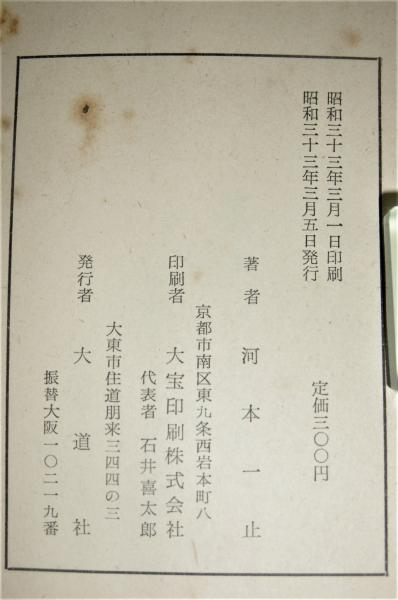 昭和三十三年三月一日印刷
昭和三十三年三月五日発行
定価三〇〇円
著者 河本一止
京都市南区東九条西岩本町八
印刷者 大宝印刷株式会社
代表者 石井喜太郎
大東市住道朋来三四四の三
発行者 大道社
振替大阪一〇二一九番